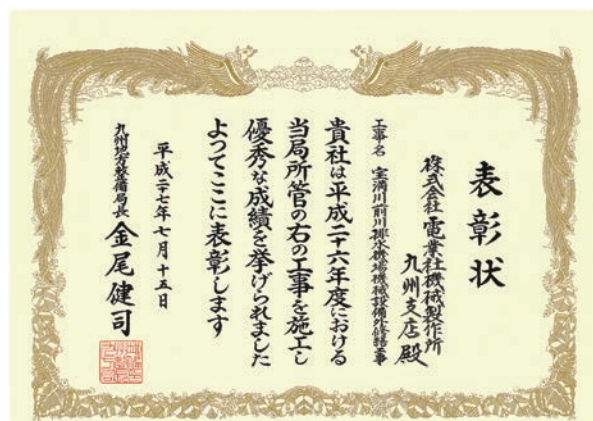 表彰状
株式会社電業社機械製作所
九州支店殿
工事名 宝満川前川排水機場機械設備外修繕工事
貴社は平成二十六年度における
当局所管の右の工事を施工し
優秀な成績を挙げられました
よってここに表彰します
平成二十七年七月十五日
九州地方整備局長 金尾健司